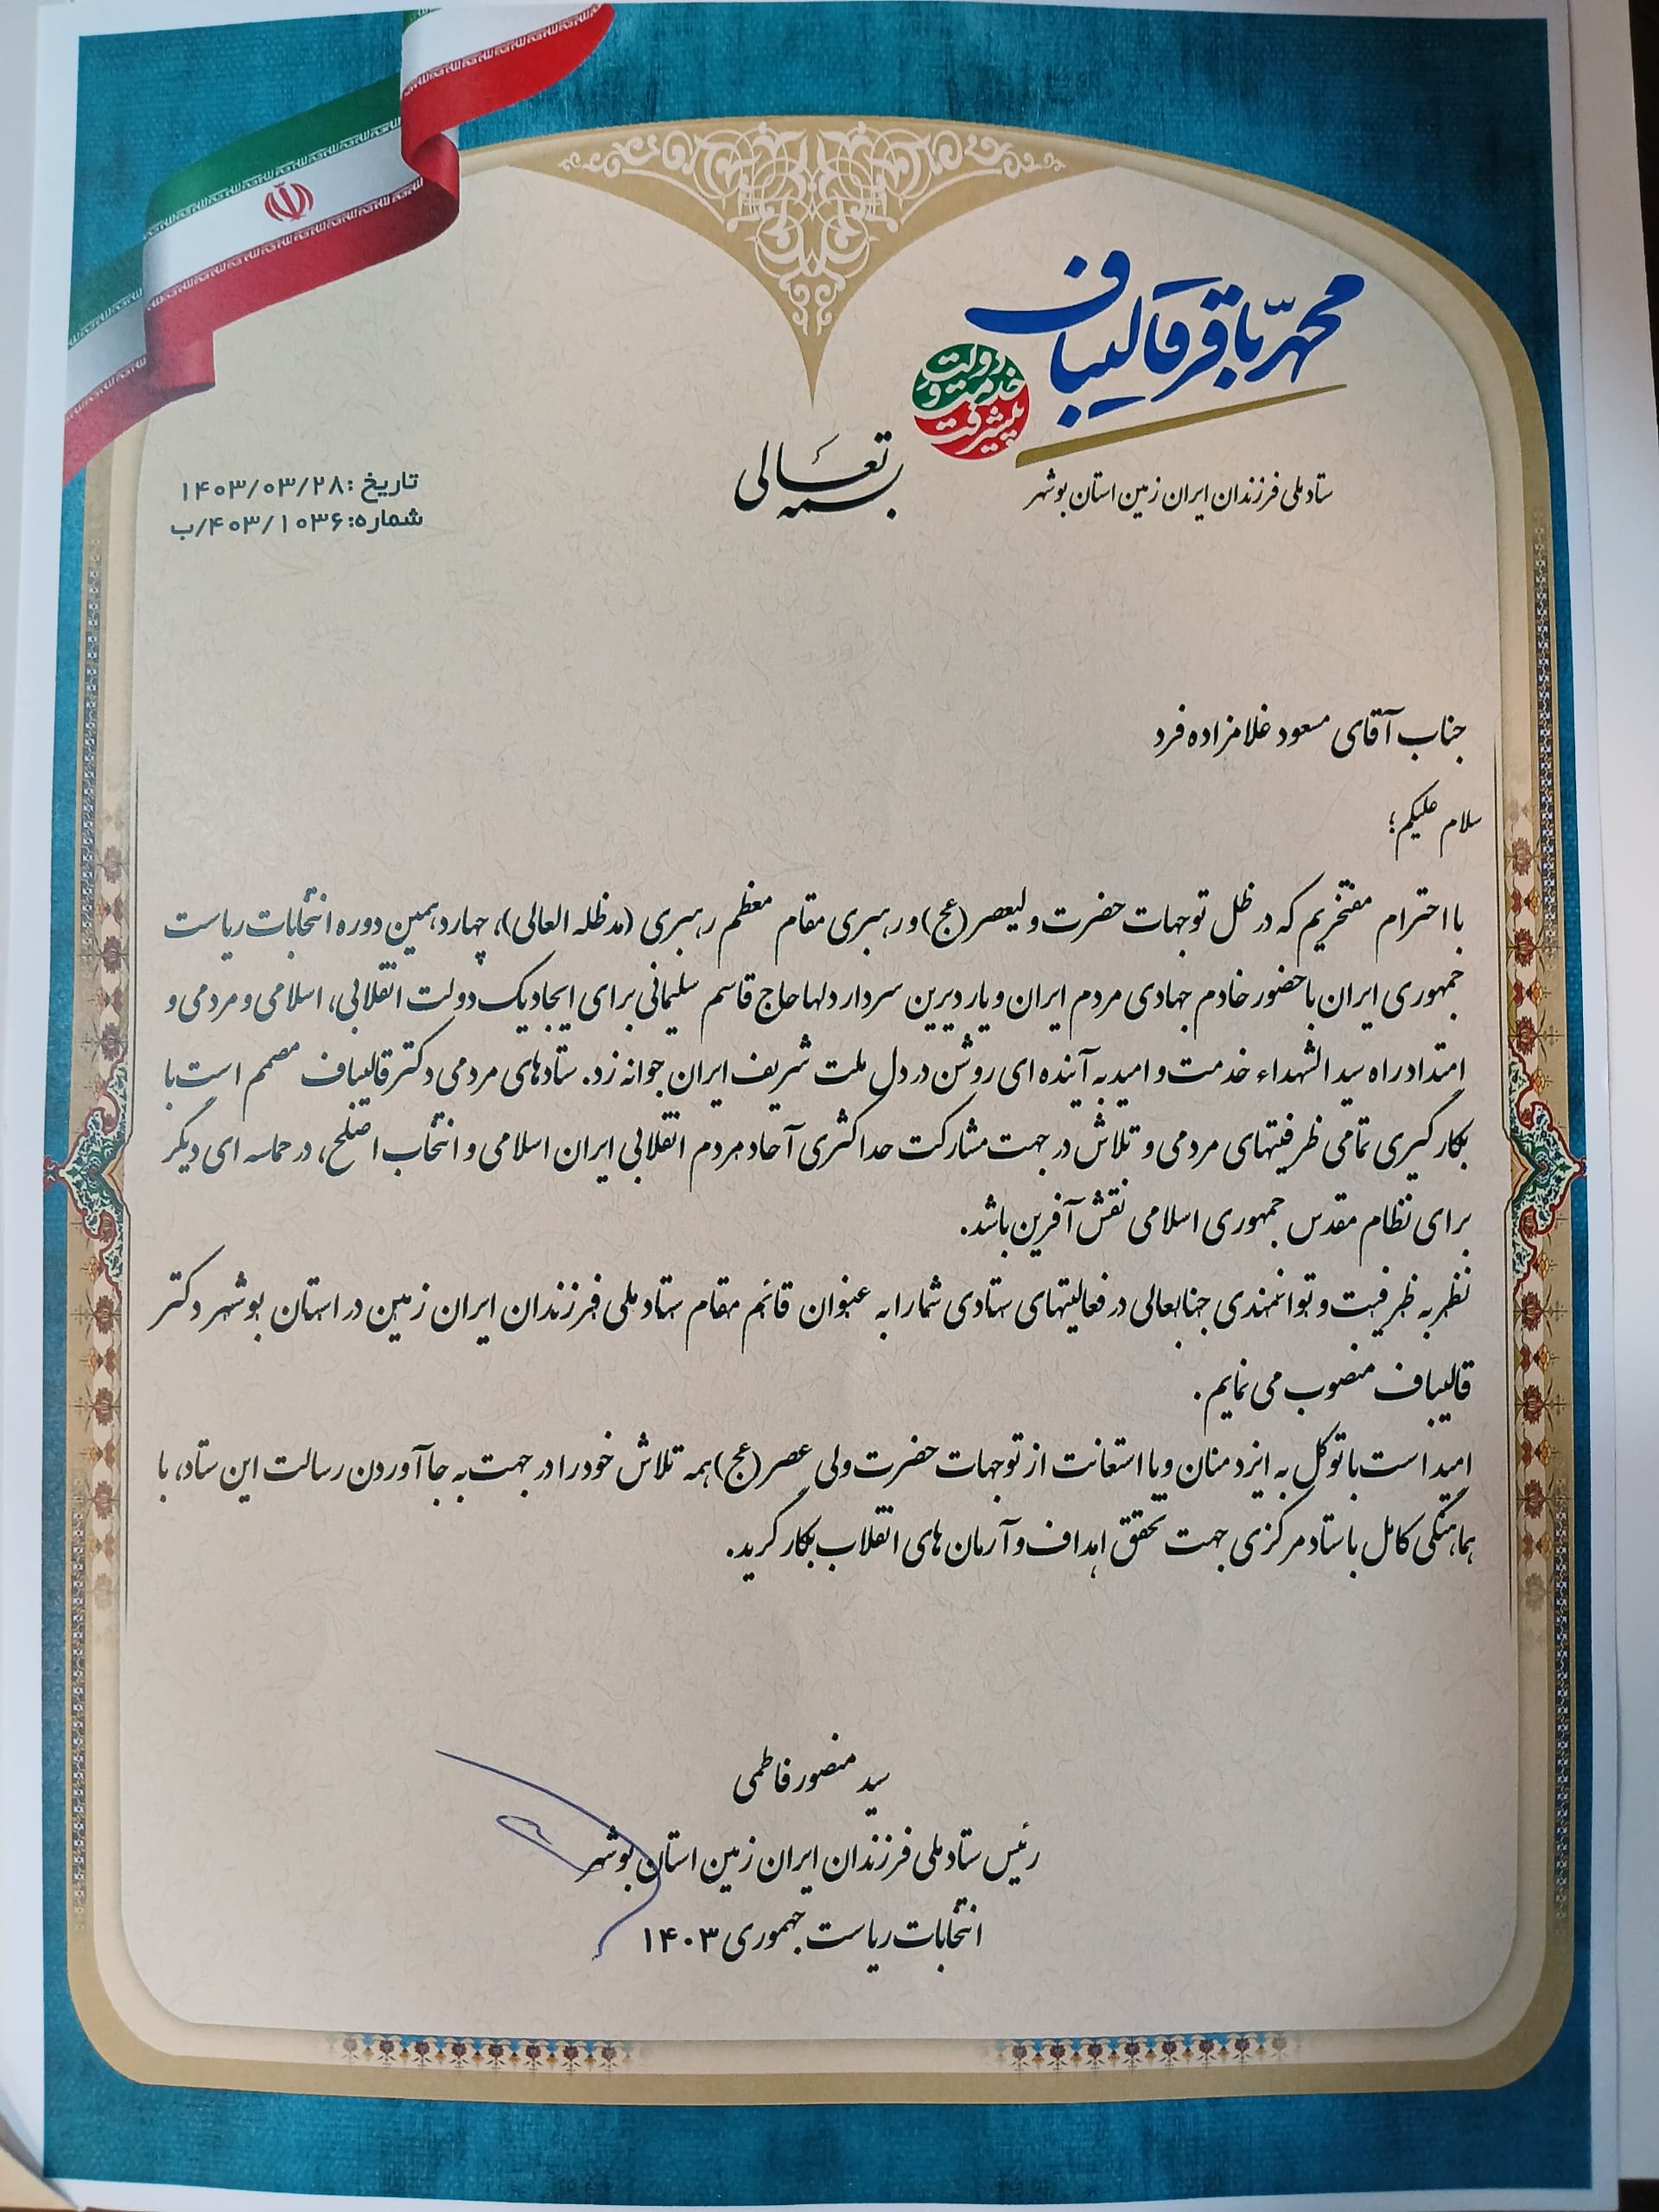 محمد باقر قالیباف
دولت
خدمت و
پیشرفت
ستاد ملی فرزندان ایران زمین استان بوشهر
بسمه تعالی
تاریخ :۱۴۰۳/۰۳/۲۸
شماره:۴۰۳/۱۰۳۶/ب
جناب آقای مسعود غلامزاده فرد
سلام علیکم؛
با احترام مفتخریم که در ظل توجهات حضرت ولیعصر(عج) و رهبری مقام معظم رهبری (مدظله العالی)، چهاردهمین دوره انتخابات ریاست
جمهوری ایران با حضور خادم جهادی مردم ایران و یار دیرین سردار دلها حاج قاسم سلیمانی برای ایجاد یک دولت انقلابی، اسلامی و مردمی و
امتداد راه سید الشهداء خدمت و امید به آینده ای روشن در دل ملت شریف ایران جوانه زد. ستادهای مردمی دکتر قالیباف مصمم است با
بکارگیری تمامی ظرفیتهای مردمی و تلاش در جهت مشارکت حداکثری آحاد مردم انقلابی ایران اسلامی و انتخاب اصلح، در حماسه ای دیگر
برای نظام مقدس جمهوری اسلامی نقش آفرین باشد.
نظر به ظرفیت و توانمندی جنابعالی در فعالیتهای ستادی شما را به عنوان قائم مقام ستاد ملی فرزندان ایران زمین در استان بوشهر دکتر
قالیباف منصوب می نمایم .
امید است با توکل به ایزد منان و با استعانت از توجهات حضرت ولی عصر(عج) همه تلاش خود را در جهت به جا آوردن رسالت این ستاد، با
هماهنگی کامل با ستاد مرکزی جهت تحقق اهداف و آرمان های انقلاب بکار گرید.
سید منصور فاطمی
رئیس ستاد ملی فرزندان ایران زمین استان بوشهر
انتخابات ریاست جمهوری ۱۴۰۳